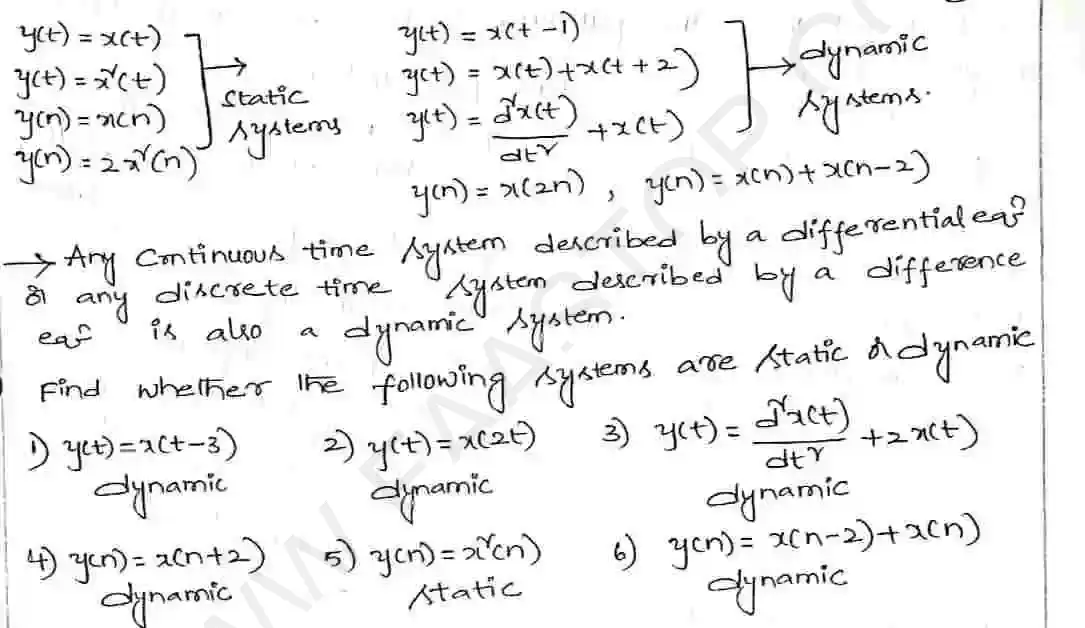 y(t) = x(t)
y(t) = x²(t)
y(n) = x(n)
y(n) = 2x²(n)
static systems,
y(t) = x(t-1)
y(t) = x(t)+x(t+2)
y(t) = d²x(t)/dt² + x(t)
dynamic systems.
y(n) = x(2n) , y(n) = x(n)+x(n-2)
→ Any Continuous time system described by a differential eqn
or any discrete time system described by a difference
eqn is also a dynamic system.
Find whether the following systems are static or dynamic
1) y(t)=x(t-3) 2) y(t)=x(2t) 3) y(t) = d²x(t)/dt² +2x(t)
dynamic dynamic dynamic
4) y(n)=x(n+2) 5) y(n)=x²(n) 6) y(n)= x(n-2)+x(n)
dynamic static dynamic